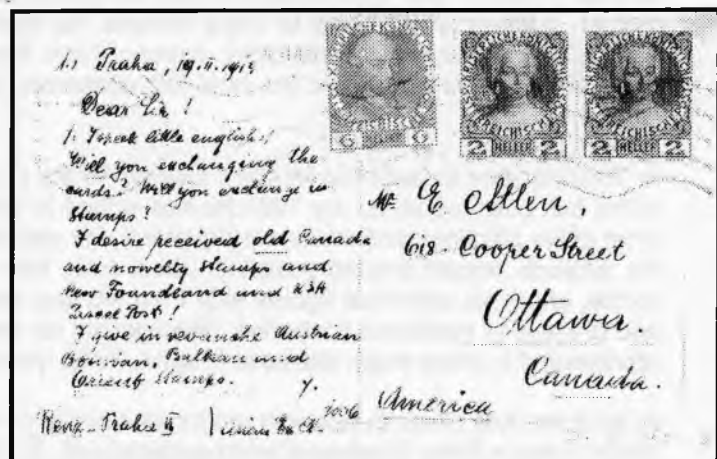 Praha, 19.II.1913
Dear Sir!
I speek little english!
Will you exchanging the
cards? Will you exchange in
Stamps?
I desire received old Canada
and nowelty stamps and
New Foundland und USA
Parcel Post!
I give in revanche Austrian
Bosnian, Balkan und
Orient stamps.
Praha II
6 HELLER 6
2 HELLER 2
2 HELLER 2
Mr E. Allen,
618 - Cooper Street
Ottawa.
Canada.
America